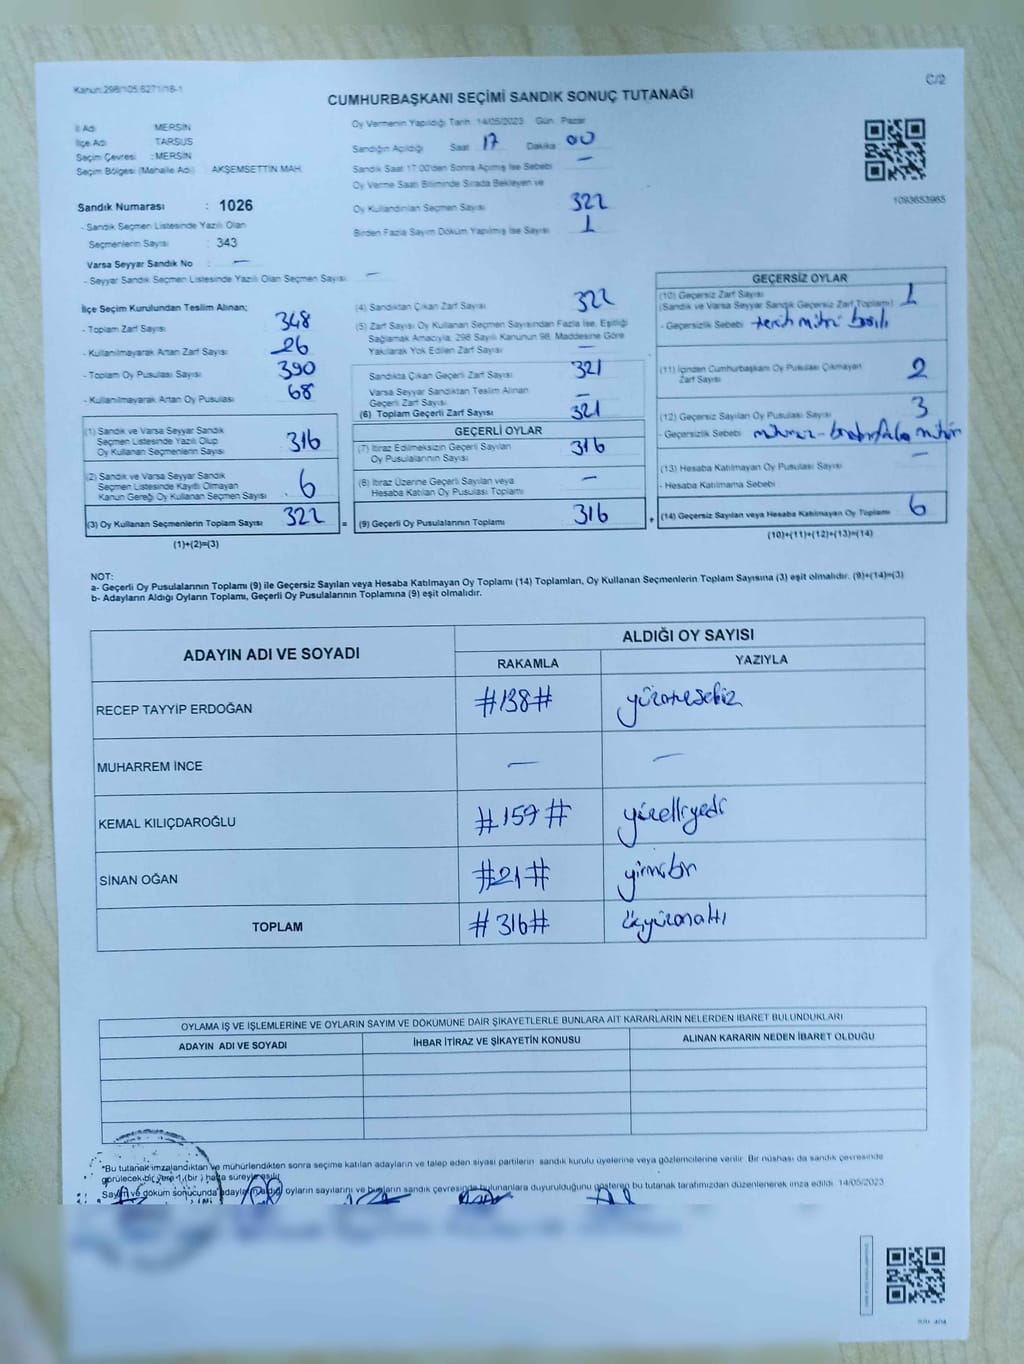 Kanun:298/105,6271/18-1
C/2
CUMHURBAŞKANI SEÇİMİ SANDIK SONUÇ TUTANAĞI
İl Adı MERSİN
İlçe Adı TARSUS
Seçim Çevresi : MERSİN
Seçim Bölgesi (Mahalle Adı) AKŞEMSETTİN MAH.
Sandık Numarası : 1026
- Sandık Seçmen Listesinde Yazılı Olan
Seçmenlerin Sayısı : 343
Varsa Seyyar Sandık No : —
- Seyyar Sandık Seçmen Listesinde Yazılı Olan Seçmen Sayısı —
Oy Vermenin Yapıldığı Tarih: 14/05/2023 Gün: Pazar
Sandığın Açıldığı Saat 17 Dakika 00
Sandık Saat 17:00'den Sonra Açılmış İse Sebebi —
Oy Verme Saati Bitiminde Sırada Bekleyen ve
Oy Kullandırılan Seçmen Sayısı 322
Birden Fazla Sayım Döküm Yapılmış İse Sayısı 1
1093653965
İlçe Seçim Kurulundan Teslim Alınan;
- Toplam Zarf Sayısı 348
- Kullanılmayarak Artan Zarf Sayısı 26
- Toplam Oy Pusulası Sayısı 390
- Kullanılmayarak Artan Oy Pusulası 68
(1) Sandık ve Varsa Seyyar Sandık
Seçmen Listesinde Yazılı Olup
Oy Kullanan Seçmenlerin Sayısı 316
(2) Sandık ve Varsa Seyyar Sandık
Seçmen Listesinde Kayıtlı Olmayan
Kanun Gereği Oy Kullanan Seçmen Sayısı 6
(3) Oy Kullanan Seçmenlerin Toplam Sayısı 322
(1)+(2)=(3)
(4) Sandıktan Çıkan Zarf Sayısı 322
(5) Zarf Sayısı Oy Kullanan Seçmen Sayısından Fazla İse, Eşitliği
Sağlamak Amacıyla, 298 Sayılı Kanunun 98. Maddesine Göre
Yakılarak Yok Edilen Zarf Sayısı —
Sandıkta Çıkan Geçerli Zarf Sayısı 321
Varsa Seyyar Sandıktan Teslim Alınan
Geçerli Zarf Sayısı —
(6) Toplam Geçerli Zarf Sayısı 321
GEÇERLİ OYLAR
(7) İtiraz Edilmeksizin Geçerli Sayılan
Oy Pusulalarının Sayısı 316
(8) İtiraz Üzerine Geçerli Sayılan veya
Hesaba Katılan Oy Pusulası Toplamı —
= (9) Geçerli Oy Pusulalarının Toplamı 316
GEÇERSİZ OYLAR
(10) Geçersiz Zarf Sayısı 1
(Sandık ve Varsa Seyyar Sandık Geçersiz Zarf Toplamı)
- Geçersizlik Sebebi tercih mührü basılı
(11) İçinden Cumhurbaşkanı Oy Pusulası Çıkmayan
Zarf Sayısı 2
(12) Geçersiz Sayılan Oy Pusulası Sayısı 3
- Geçersizlik Sebebi
(13) Hesaba Katılmayan Oy Pusulası Sayısı —
- Hesaba Katılmama Sebebi
+ (14) Geçersiz Sayılan veya Hesaba Katılmayan Oy Toplamı 6
(10)+(11)+(12)+(13)=(14)
NOT:
a- Geçerli Oy Pusulalarının Toplamı (9) ile Geçersiz Sayılan veya Hesaba Katılmayan Oy Toplamı (14) Toplamları, Oy Kullanan Seçmenlerin Toplam Sayısına (3) eşit olmalıdır. (9)+(14)=(3)
b- Adayların Aldığı Oyların Toplamı, Geçerli Oy Pusulalarının Toplamına (9) eşit olmalıdır.
ADAYIN ADI VE SOYADI
ALDIĞI OY SAYISI
RAKAMLA YAZIYLA
RECEP TAYYİP ERDOĞAN #138# yüzotuzsekiz
MUHARREM İNCE — —
KEMAL KILIÇDAROĞLU #157# yüzelliyedi
SİNAN OĞAN #21# yirmibir
TOPLAM #316# üçyüzonaltı
OYLAMA İŞ VE İŞLEMLERİNE VE OYLARIN SAYIM VE DÖKÜMÜNE DAİR ŞİKAYETLERLE BUNLARA AİT KARARLARIN NELERDEN İBARET BULUNDUKLARI
ADAYIN ADI VE SOYADI İHBAR İTİRAZ VE ŞİKAYETİN KONUSU ALINAN KARARIN NEDEN İBARET OLDUĞU
"Bu tutanak imzalandıktan ve mühürlendikten sonra seçime katılan adayların ve talep eden siyasi partilerin sandık kurulu üyelerine veya gözlemcilerine verilir. Bir nüshası da sandık çevresinde
görülecek bir yere 1 (bir) hafta süreyle asılır.
Sayım ve döküm sonucunda adayların aldığı oyların sayılarını ve bunların sandık çevresinde bulunanlara duyurulduğunu gösteren bu tutanak tarafımızdan düzenlenerek imza edildi. 14/05/2023